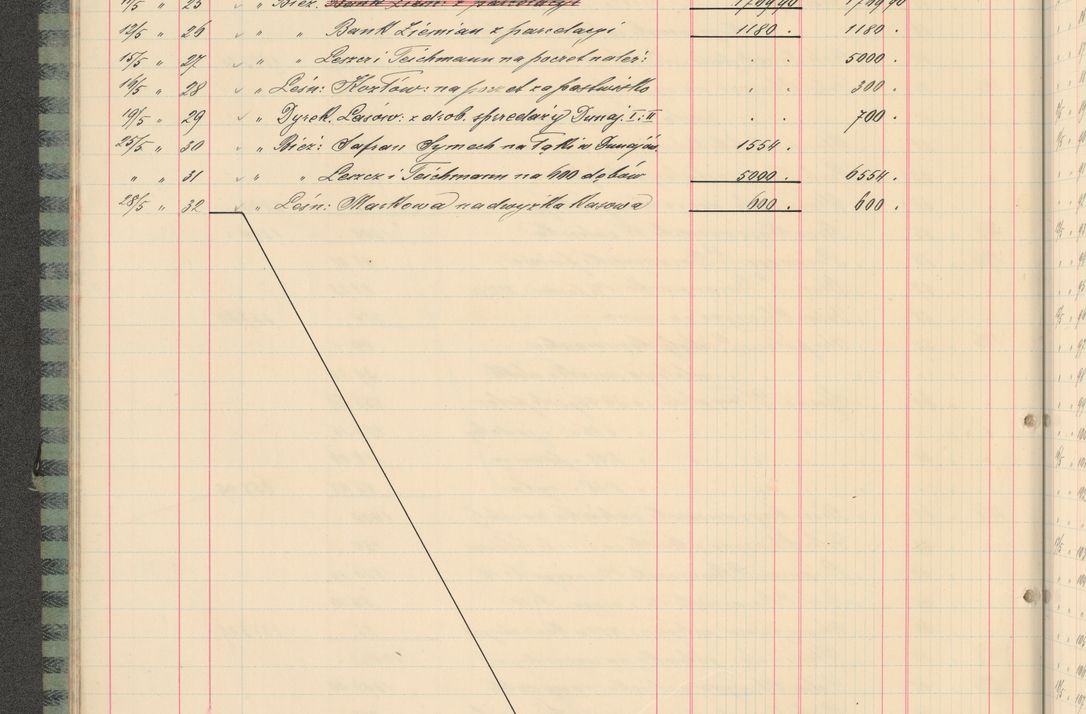 11/5 " 25 " Bież. Bank Ziem: z parcelacyi 1799 90 1799 90
12/5 " 26 " " Bank Ziemian z parcelacyi 1180 . 1180 .
15/5 " 27 " " Leszcz i Teichmann na poczet należ: . . 5000 .
16/5 " 28 " Leśn: Kozłow: na poczet za pastwisko . . 300 .
19/5 " 29 " Dyrek. Lasów: z drob. sprzedaży Dunaj. I i II . . 700 .
25/5 " 30 " Bież: Safran Symech na łąki w Dunajów 1554 .
" " 31 " " Leszcz i Teichmann na 400 dębów 5000 . 6554 .
28/5 " 32 " Leśn: Markowa nadwyżka kasowa 600 . 600 .